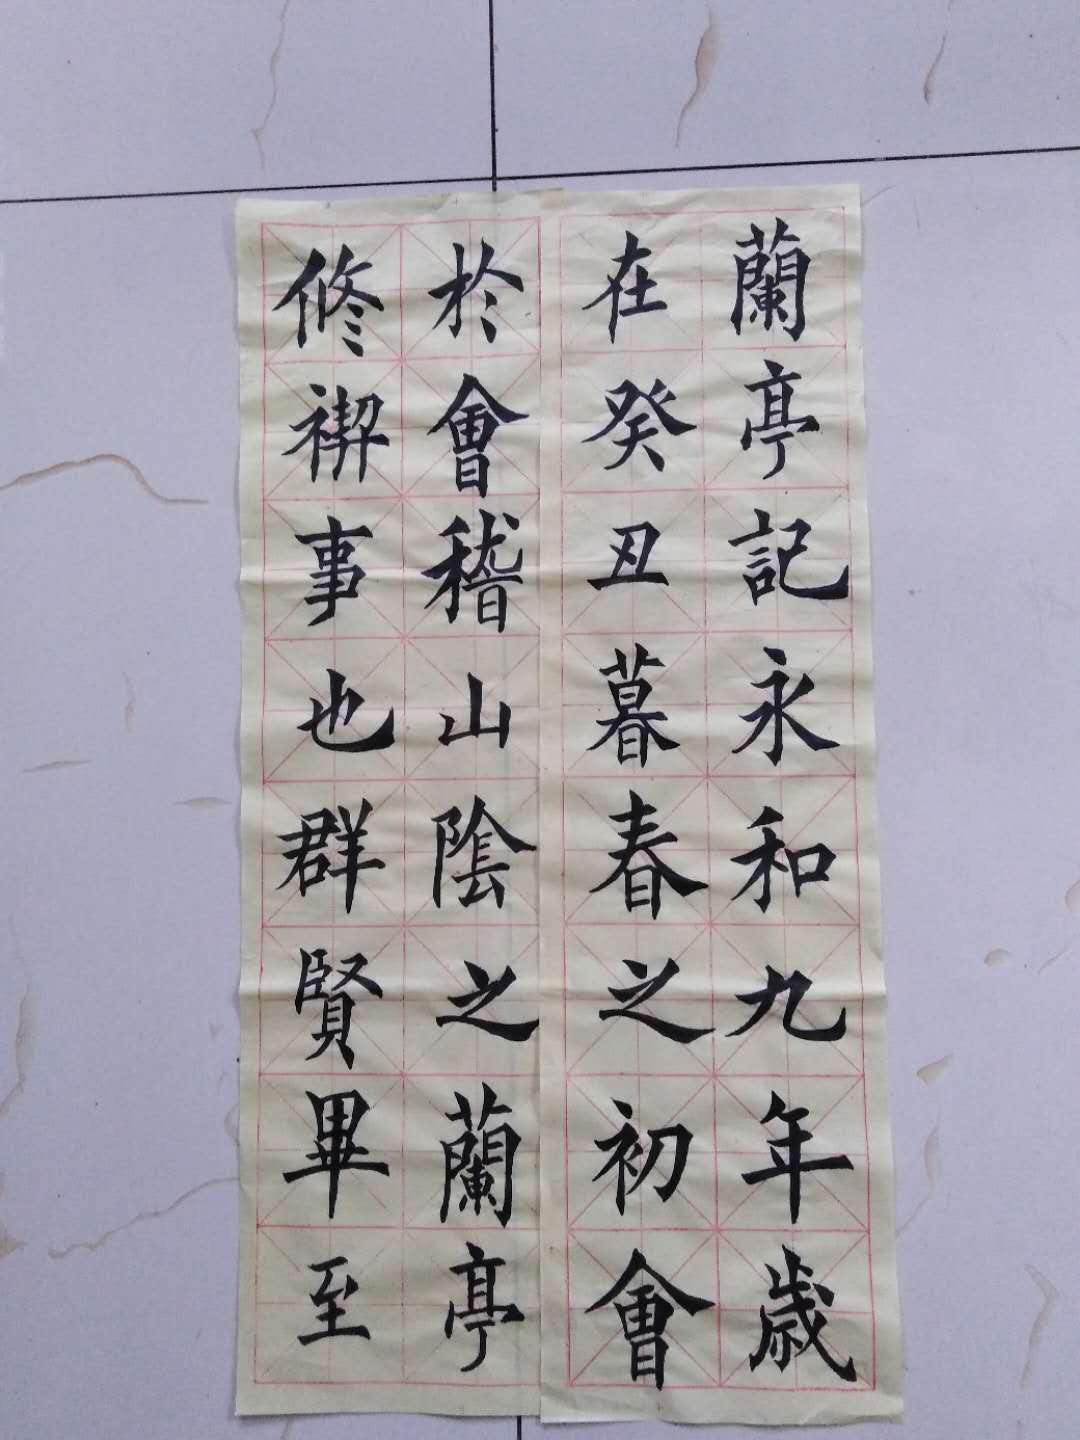 蘭亭記永和九年歲
在癸丑暮春之初會
於會稽山陰之蘭亭
脩禊事也群賢畢至